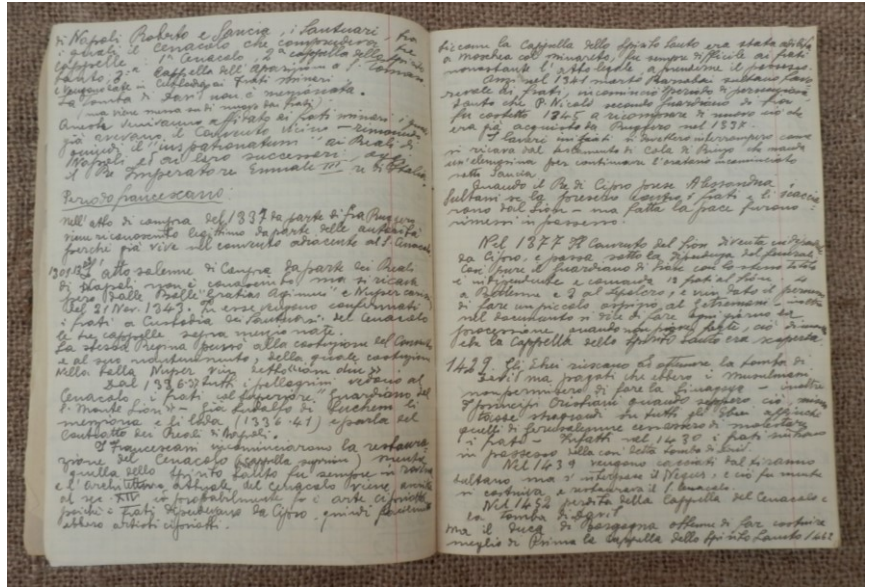 di Napoli Roberto e Sancia, i Santuari, fra
i quali il Cenacolo che comprendeva tre
cappelle: 1ª Cenacolo, 2ª cappella dello Spirito
Santo, 3ª Cappella dell'Apparizione a S. Tomaso
ai Frati Minori.
La tomba di David non è menzionata.
Questi venivano affidati ai frati minori i quali
già avevano il Convento vicino - rimanendo
quindi il "ius patronatum" ai Reali di
Napoli ed ai loro successori,
il Re Imperatore Emanuele III re d'Italia.
Periodo francescano:
nell'atto di compra del 1337 da parte di fra Ruggero
viene riconosciuto legittimo da parte delle autorità
perchè già vive nel convento adiacente al S. Cenacolo
L'atto solenne di Compra da parte dei Reali
di Napoli non è conosciuto ma si ricava
però dalle Bolle "Gratias Agimus" e "Nuper carissimae"
del 21 Nov. 1343. In esse vengono confermati
i frati a Custodia dei Santuari del Cenacolo
le tre cappelle sopra menzionate.
La stessa Regina passò alla costruzione del Convento
e al suo mantenimento, della quale costruzione
nella bolla Nuper
Dal 1336 tutti i pellegrini vedono al
Cenacolo i frati col Superiore "Guardiano del
S. Monte Sion" - Già Ludolfo di Suchem li
menziona e li loda (1336-41) e parla del
contratto dei Reali di Napoli.
I Francescani incominciarono la restaura-
zione del Cenacolo (cappella superiore) mentre
quella dello Spirito Santo fu sempre in rovina
e l'architettura attuale del Cenacolo viene
al sec. XIV e probabilmente fu arte cipriotta
poichè i frati dipendevano da Cipro, quindi
ebbero artisti cipriotti.
Siccome la Cappella dello Spirito Santo era stata adibita
a Moschea col minareto, fu sempre difficile ai frati
nonostante l'atto legale a prenderne il possesso.
Anzi nel 1341 morto sultano
rivale ai frati, ricominciò il periodo di persecuzione
tanto che P. Nicolò secondo guardiano di Sion
fu costretto 1345 a ricomprare di nuovo ciò che
era già acquisto da Ruggero nel 1337.
I lavori infatti si dovettero interrompere come
si ricava dal testamento di Cola di Rienzo che manda
un'elemosina per continuare l'oratorio incominciato
della Sancia.
Quando il Re di Cipro prese Alessandria i
Sultani se la presero contro i frati e li scaccia-
rono dal Sion - ma fatta la pace furono
rimessi in possesso.
Nel 1377 Il Convento del Sion diventa indipendente
da Cipro, e passa sotto la dipendenza del
così pure il Guardiano di Sion con lo stesso titolo
è indipendente e comanda 13 frati al Sion, 4
a Betlemme e 2 al Sepolcro, e vien dato il permesso
di fare un piccolo al Getsemani - inoltre
nel documento si dice di fare ogni giorno la
processione, quando non piova forte, ciò dimostra
che la Cappella dello Spirito Santo era scoperta.
1429. Gli Ebrei riuscirono ad ottenere la tomba di
David ma pagati che ebbero i Musulmani
non permisero di fare la Sinagoga - inoltre
i principi Cristiani quando seppero ciò
tasse su tutti gli Ebrei affinchè
quelli di Gerusalemme cessassero di molestare
i frati - Infatti nel 1430 i frati
in possesso della così detta tomba di David.
Nel 1439 vengono cacciati dal tiranno
Sultano ma s'interpose il Negus, e ciò fu mentre
si costruiva o restaurava il S. Cenacolo.
Nel 1452 perdita della Cappella del Cenacolo e
la tomba di David
ma il duca di Borgogna ottenne di far costruire
meglio di prima la cappella dello Spirito Santo 1462